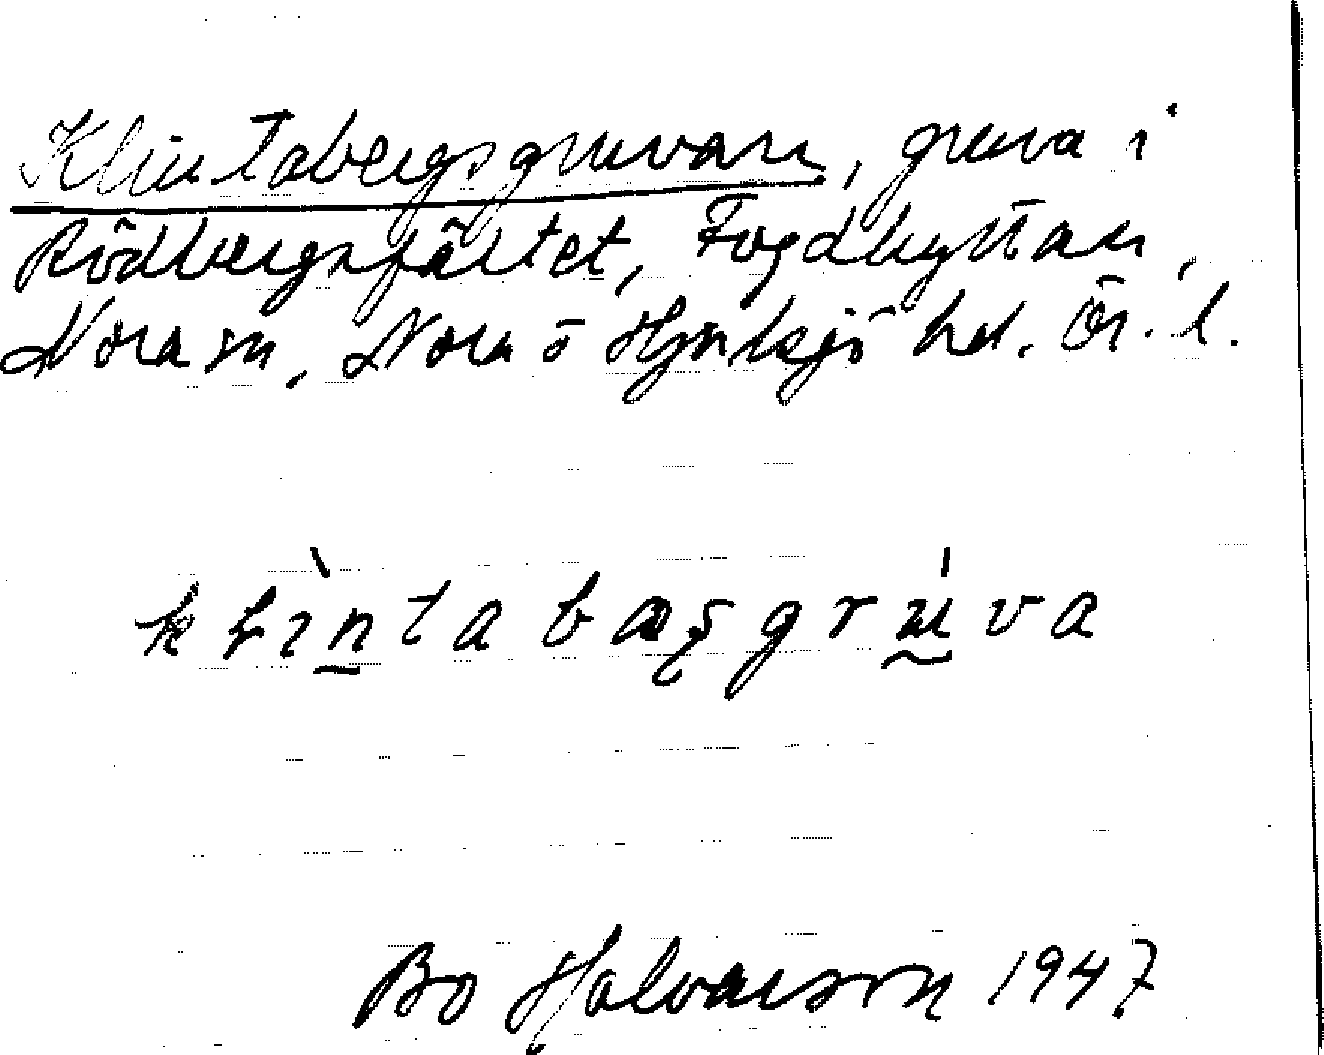 Klintabergsgruvan, gruva i
Rödbergsfältet, Fogdhyttan,
Nora sn, Nora o Hjulsjö hd. Ör. l.
Bo Halvarson 1947